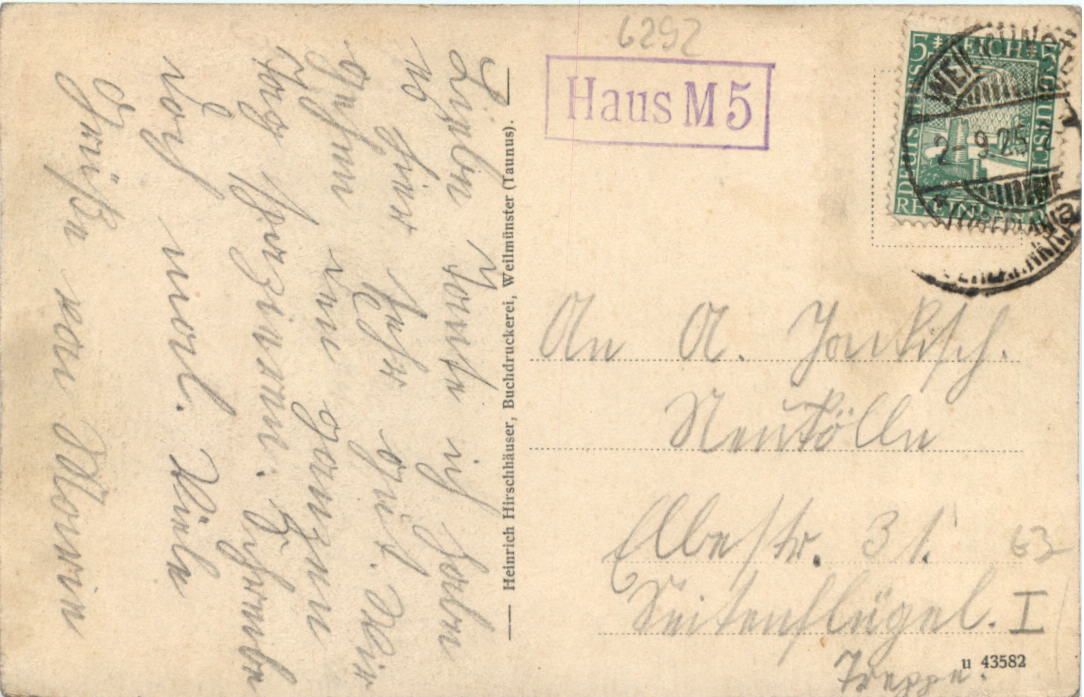 Liebe Tante ich habe
es hier sehr gut. Wir
gehen den ganzen
Tag spazieren. Schreibe
doch mal. Viele
Grüße von
Heinrich Hirschhäuser, Buchdruckerei, Weilmünster (Taunus).
6292
Haus M5
5 REICH 5
DEUTSCHES
RHEINLAND
2-9.25
An A. Jackisch.
Neukölln
Elbestr. 31. 63
Seitenflügel. I
Treppe.
u 43582